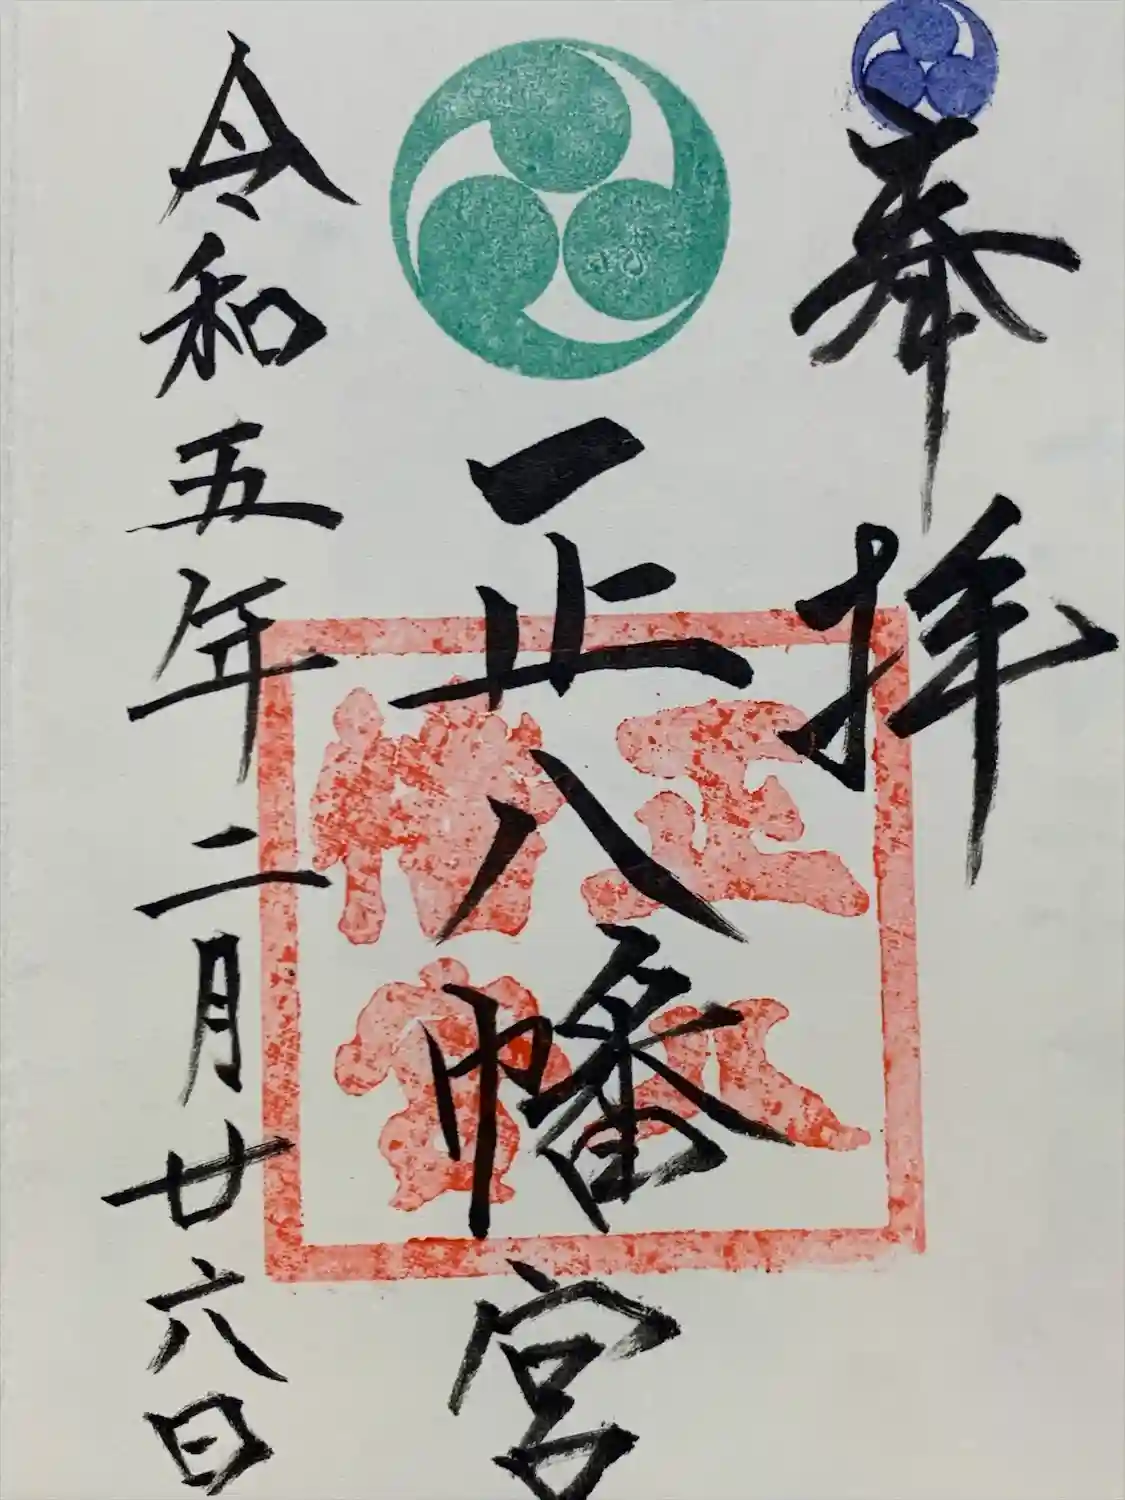 奉拝
正八幡宮
正八
幡宮
令和五年二月廿六日